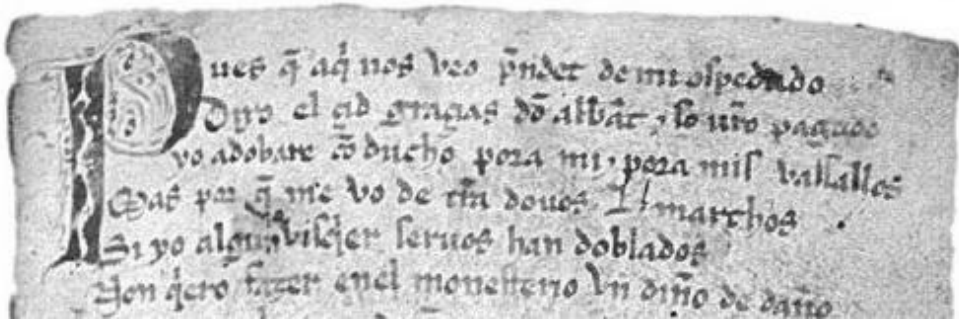 Pues q̃ aq̃ uos veo p̃ndet de mi ospedado
Dixo el çid graçias dõ abbat ⁊ so ur̃o pagado
yo adobare cõ ducho pora mi ⁊ pora mis vassallos
Mas por q̃ me vo de tr̃ra douos .L. marchos
Si yo algun visq̃er seruos han doblados
Non q̃ero fazer enel monesterio vn dinõ de daño